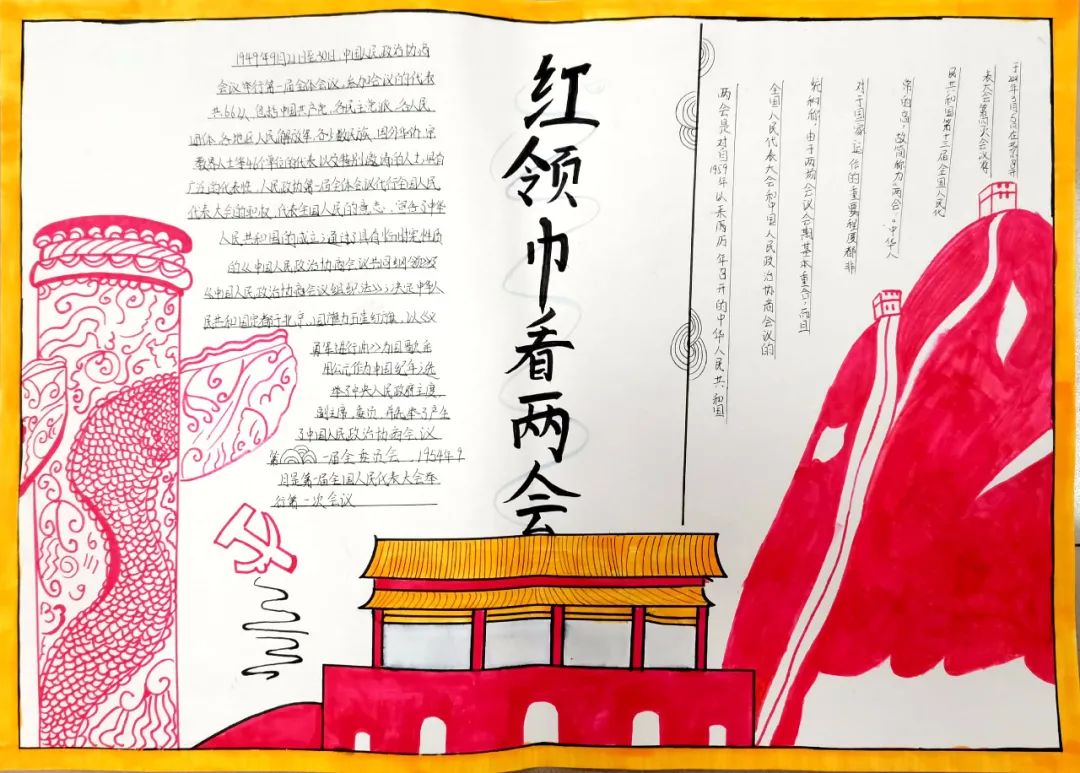 红领巾看两会
1949年9月21日至30日,中国人民政治协商
会议举行第一届全体会议,参加会议的代表
共662人,包括中国共产党、各民主党派、各人民
团体、各地区人民解放军、各少数民族、国外华侨、宗
教界人士等46个单位的代表以及特别邀请的人士,具有
广泛的代表性,人民政协第一届全体会议代行全国人民
代表大会的职权,代表全国人民的意志,宣告了中华
人民共和国的成立;通过了具有临时宪法性质
的《中国人民政治协商会议共同纲领》及
《中国人民政治协商会议组织法》;决定中华人
民共和国定都于北京、国旗为五星红旗,以《义
勇军进行曲》为国歌、采
用公元作为中国纪年;选
举了中央人民政府主席
副主席、委员、
了中国人民政治协商会议
第一届全委员会、1954年9
月是第一届全国人民代表大会举
行第一次会议
两会是对自1959年以来历年召开的中华人民共和国
全国人民代表大会和中国人民政治协商会议的
统称。由于两场会议会期基本重合,而且
对于国家运作的重要程度都非
常的高,故简称为“两会”。中华人
民共和国第十三届全国人民代
表大会第四次会议将
于2021年3月5日在北京召开